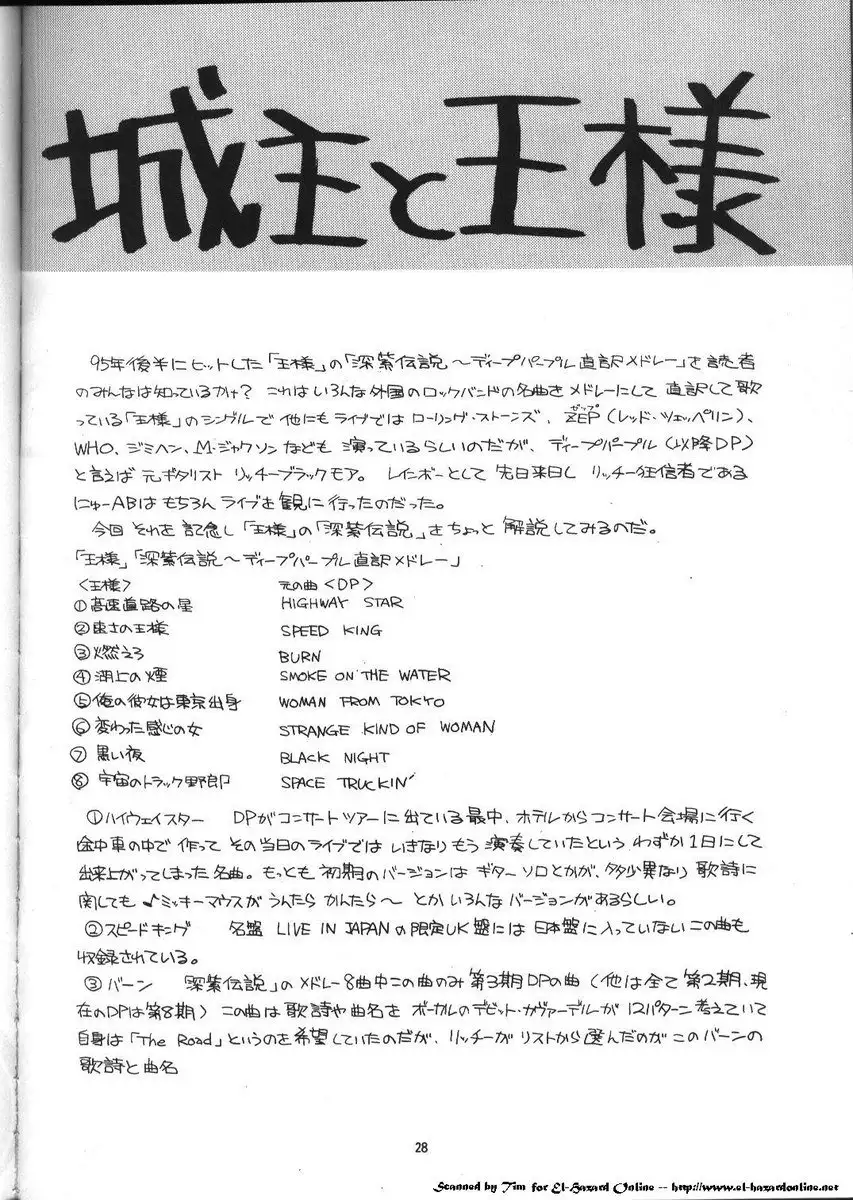 城主と王様
95年後半にヒットした「王様」の「深紫伝説〜ディープパープル直訳メドレー」を読者
のみんなは知っているかナ? これはいろんな外国のロックバンドの名曲をメドレーにして直訳して歌
っている「王様」のシングルで他にもライブではローリング・ストーンズ、ZEP(レッド・ツェッペリン)、
ゼップ
WHO、ジミヘン、M・ジャクソンなども演っているらしいのだが、ディープパープル(以降DP)
と言えば元ギタリストリッチーブラックモア。レインボーとして先日来日しリッチー狂信者である
にゅーABはもちろんライブを観に行ったのだった。
今回それを記念し「王様」の「深紫伝説」をちょっと解説してみるのだ。
「王様」「深紫伝説〜ディープパープル直訳メドレー」
<王様> 元の曲<DP>
①高速道路の星 HIGHWAY STAR
②速さの王様 SPEED KING
③燃えろ BURN
④湖上の煙 SMOKE ON THE WATER
⑤俺の彼女は東京出身 WOMAN FROM TOKYO
⑥変わった感じの女 STRANGE KIND OF WOMAN
⑦黒い夜 BLACK NIGHT
⑧宇宙のトラック野郎 SPACE TRUCKIN'
①ハイウェイスター DPがコンサートツアーに出ている最中、ホテルからコンサート会場に行く
途中車の中で作ってその当日のライブではいきなりもう演奏していたというわずか1日にして
出来上がってしまった名曲。もっとも初期のバージョンはギターソロとかが、多少異なり歌詩に
関しても♪ミッキーマウスがうんたらかんたら〜とかいろんなバージョンがあるらしい。
②スピードキング 名盤 LIVE IN JAPANの限定UK盤には日本盤に入っていないこの曲も
収録されている。
③バーン 深紫伝説」のメドレー8曲中この曲のみ第3期DPの曲(他は全て第2期、現
在のDPは第8期)この曲は歌詩や曲名をボーカルのデビット・カヴァーデルが12パターン考えていて
自身は「The Road」というのを希望していたのだが、リッチーがリストから選んだのがこのバーンの
歌詩と曲名
28
Scanned by Tim for El-Hazard Online -- http://www.el-hazardonline.net